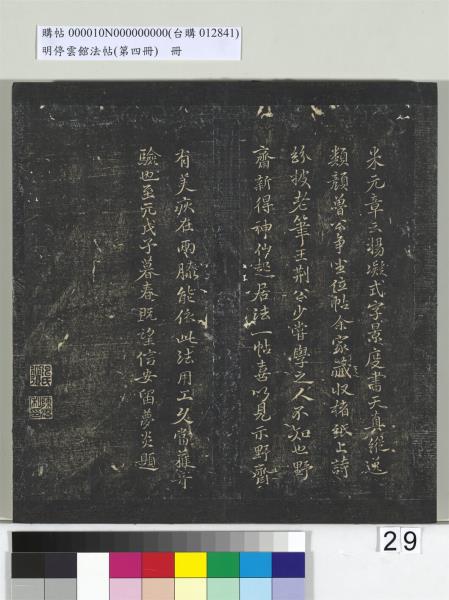 購帖 000010N000000000(台購 012841)
明停雲館法帖(第四冊) 冊
米元章云楊凝式字景度書天真縱逸
類顏魯公爭坐位帖余家藏收楮紙上詩
紛披老筆王荊公少嘗學之人不知也野
齋新得神仙起居法一帖喜以見示野齋
有美疢在兩膝能依此法用工久當獲奇
驗也至元戊子暮春既望信安留夢炎題
29